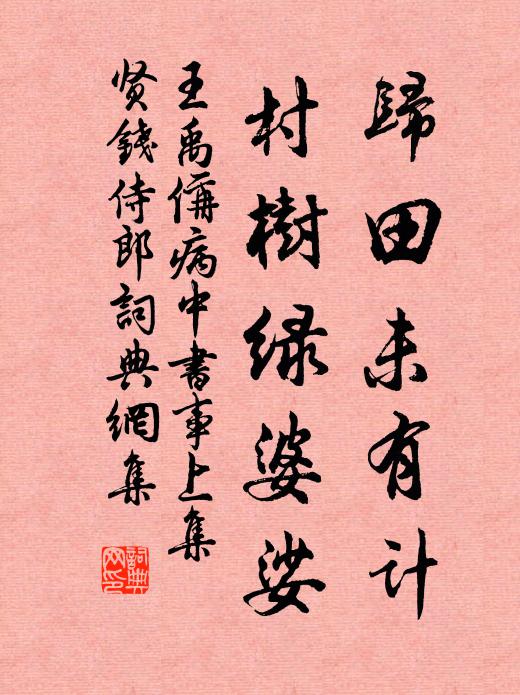 歸田未有計
村樹綠婆娑
王禹偁病中書事上集
贤錢侍郎詞典網集
詞典
网印